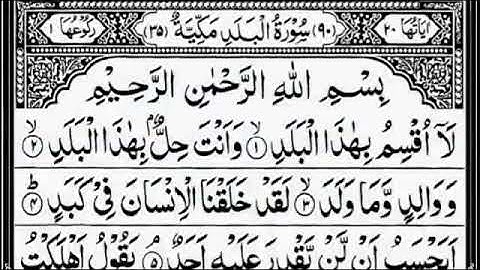 اٰیَاتُهَا ٢٠ (٩٠) سُوْرَةُ الْبَلَدِ مَكِّیَّةٌ (٣٥) رُكُوْعُهَا ١
بِسْمِ اللهِ الرَّحْمٰنِ الرَّحِیْمِ
لَاۤ اُقْسِمُ بِهٰذَا الْبَلَدِ ۙ﴿١﴾ وَاَنْتَ حِلٌّۢ بِهٰذَا الْبَلَدِ ۙ﴿٢﴾
وَوَالِدٍ وَّمَا وَلَدَ ۙ﴿٣﴾ لَقَدْ خَلَقْنَا الْاِنْسَانَ فِیْ كَبَدٍ ؕ﴿٤﴾
اَیَحْسَبُ اَنْ لَّنْ یَّقْدِرَ عَلَیْهِ اَحَدٌ ۘ﴿٥﴾ یَقُوْلُ اَهْلَكْتُ